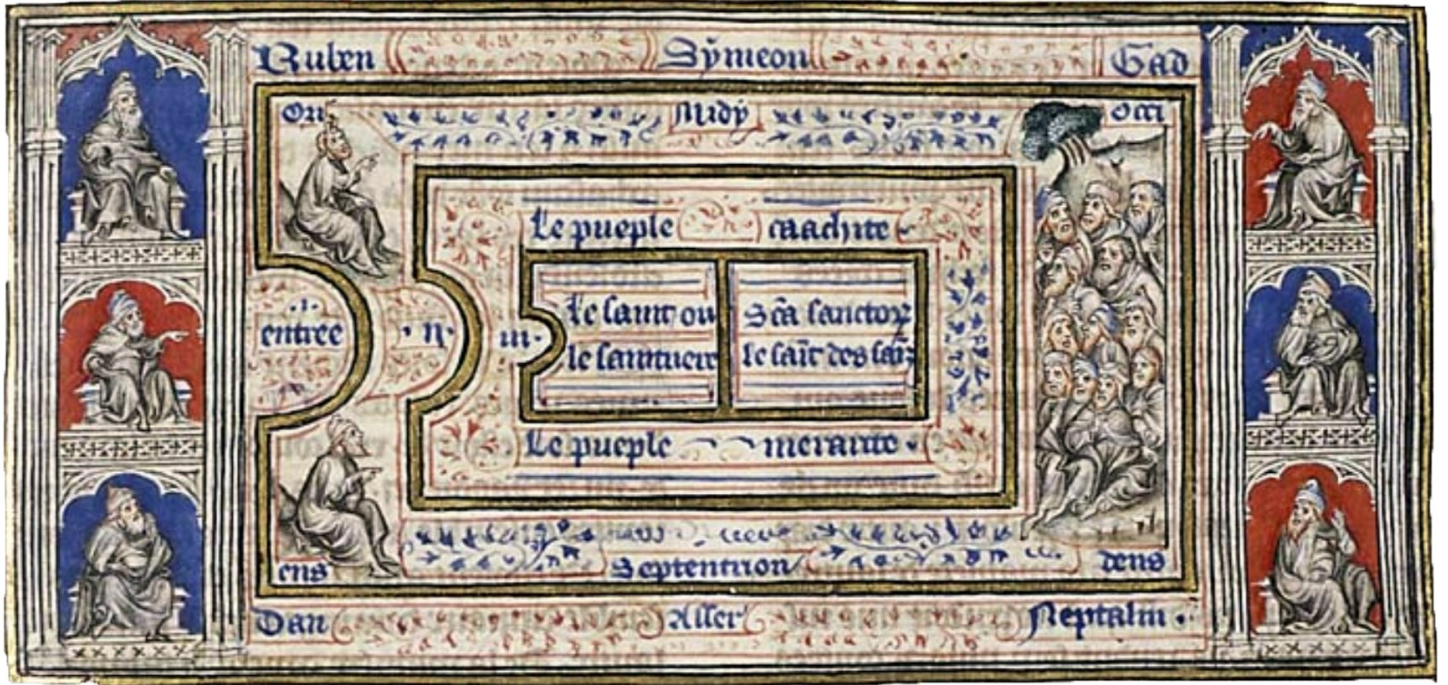 Ruben Symeon Gad
Ori Midy Occi
Le pueple caachite
.i.
entree
.ii.
iii.
Le saint ou
le saintuere
Sca sanctorꝝ
le sait des sais
Le pueple merarite
Septentrion
ens
dens
Dan Asser Neptalin